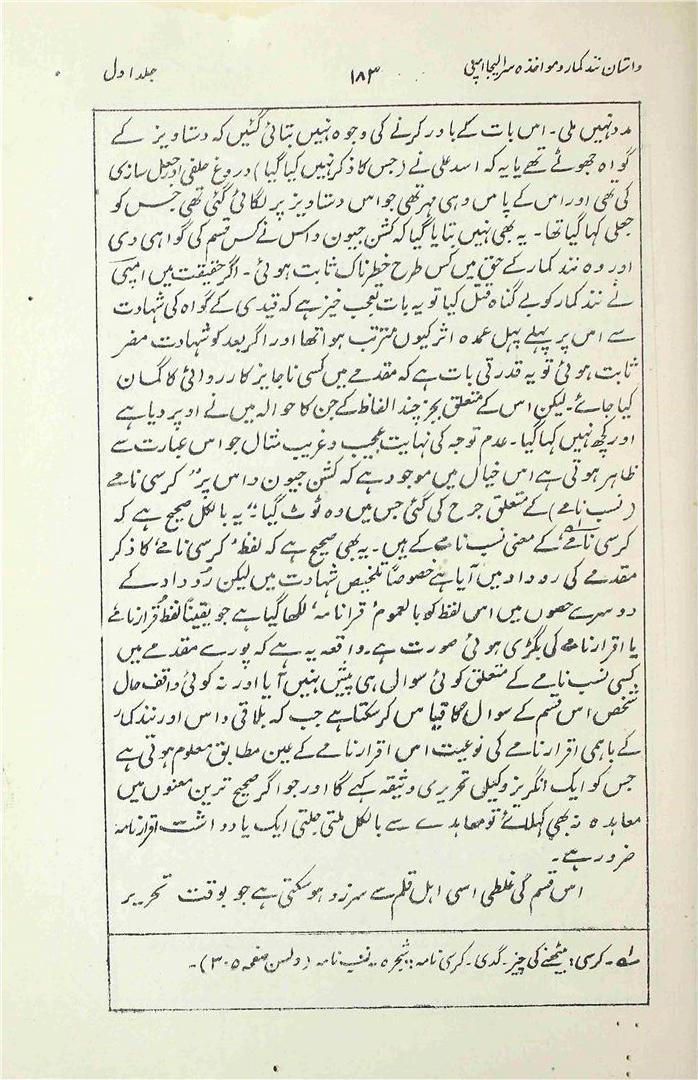 داستان نند کمار و مواخذہ سر الیجا امپی ۱۸۳ جلد اول
مدد نہیں ملی۔ اس بات کے باور کرنے کی وجوہ نہیں بتائی گئیں کہ دستاویز کے
گواہ جھوٹے تھے یا یہ کہ اسد علی نے (جس کا ذکر نہیں کیا گیا) دروغ حلفی اور جعل سازی
کی تھی اور اس کے پاس وہی مہر تھی جو اس دستاویز پر لگائی گئی تھی جس کو
جعلی کہا گیا تھا۔ یہ بھی نہیں بتایا گیا کہ کشن جیون داس نے کس قسم کی گواہی دی
اور وہ نند کمار کے حق میں کس طرح خطرناک ثابت ہوئی۔ اگر حقیقت میں امپی
نے نند کمار کو بے گناہ قتل کیا تو یہ بات تعجب خیز ہے کہ قیدی کے گواہ کی شہادت
سے اس پر پہلے پہل عمدہ اثر کیوں مترتب ہوا تھا اور اگر بعد کو شہادت مضر
ثابت ہوئی تو یہ قدرتی بات ہے کہ مقدمے میں کسی ناجایز کارروائی کا گمان
کیا جائے۔ لیکن اس کے متعلق بجز چند الفاظ کے جن کا حوالہ میں نے اوپر دیا ہے
اور کچھ نہیں کہا گیا۔ عدم توجہ کی نہایت عجیب و غریب مثال جو اس عبارت سے
ظاہر ہوتی ہے اس خیال میں موجود ہے کہ کشن جیون داس پر "کرسی نامے
(نسب نامے) کے متعلق جرح کی گئی جس میں وہ ٹوٹ گیا" یہ بالکل صحیح ہے کہ
کرسی نامے کے معنی نسب نامے کے ہیں۔ یہ بھی صحیح ہے کہ لفظ 'کرسی نامے' کا ذکر
مقدمے کی روداد میں آیا ہے خصوصاً تلخیص شہادت میں لیکن روداد کے
دوسرے حصوں میں اسی لفظ کو بالعموم 'قرانامہ' لکھا گیا ہے جو یقیناً لفظ قرارنامے
یا اقرارنامے کی بگڑی ہوئی صورت ہے۔ واقعہ یہ ہے کہ پورے مقدمے میں
کسی نسب نامے کے متعلق کوئی سوال ہی پیش نہیں آیا اور نہ کوئی واقف حال
شخص اس قسم کے سوال کا قیاس کرسکتا ہے جب کہ بلاقی داس اور نند کمار
کے باہمی اقرارنامے کی نوعیت اس اقرارنامے کے عین مطابق معلوم ہوتی ہے
جس کو ایک انگریز وکیل تحریری وثیقہ کہے گا اور جو اگر صحیح ترین معنوں میں
معاہدہ نہ بھی کہلائے تو معاہدے سے بالکل ملتی جلتی ایک یادداشت اقرارنامہ
ضرور ہے۔
اس قسم کی غلطی اسی اہل قلم سے سرزد ہوسکتی ہے جو بوقت تحریر
لہ۔ کرسی؛ بیٹھنے کی چیز۔ گدی۔ کرسی نامہ؛ شجرہ۔ نسب نامہ (ولسن صفحہ ۳۰۵)۔